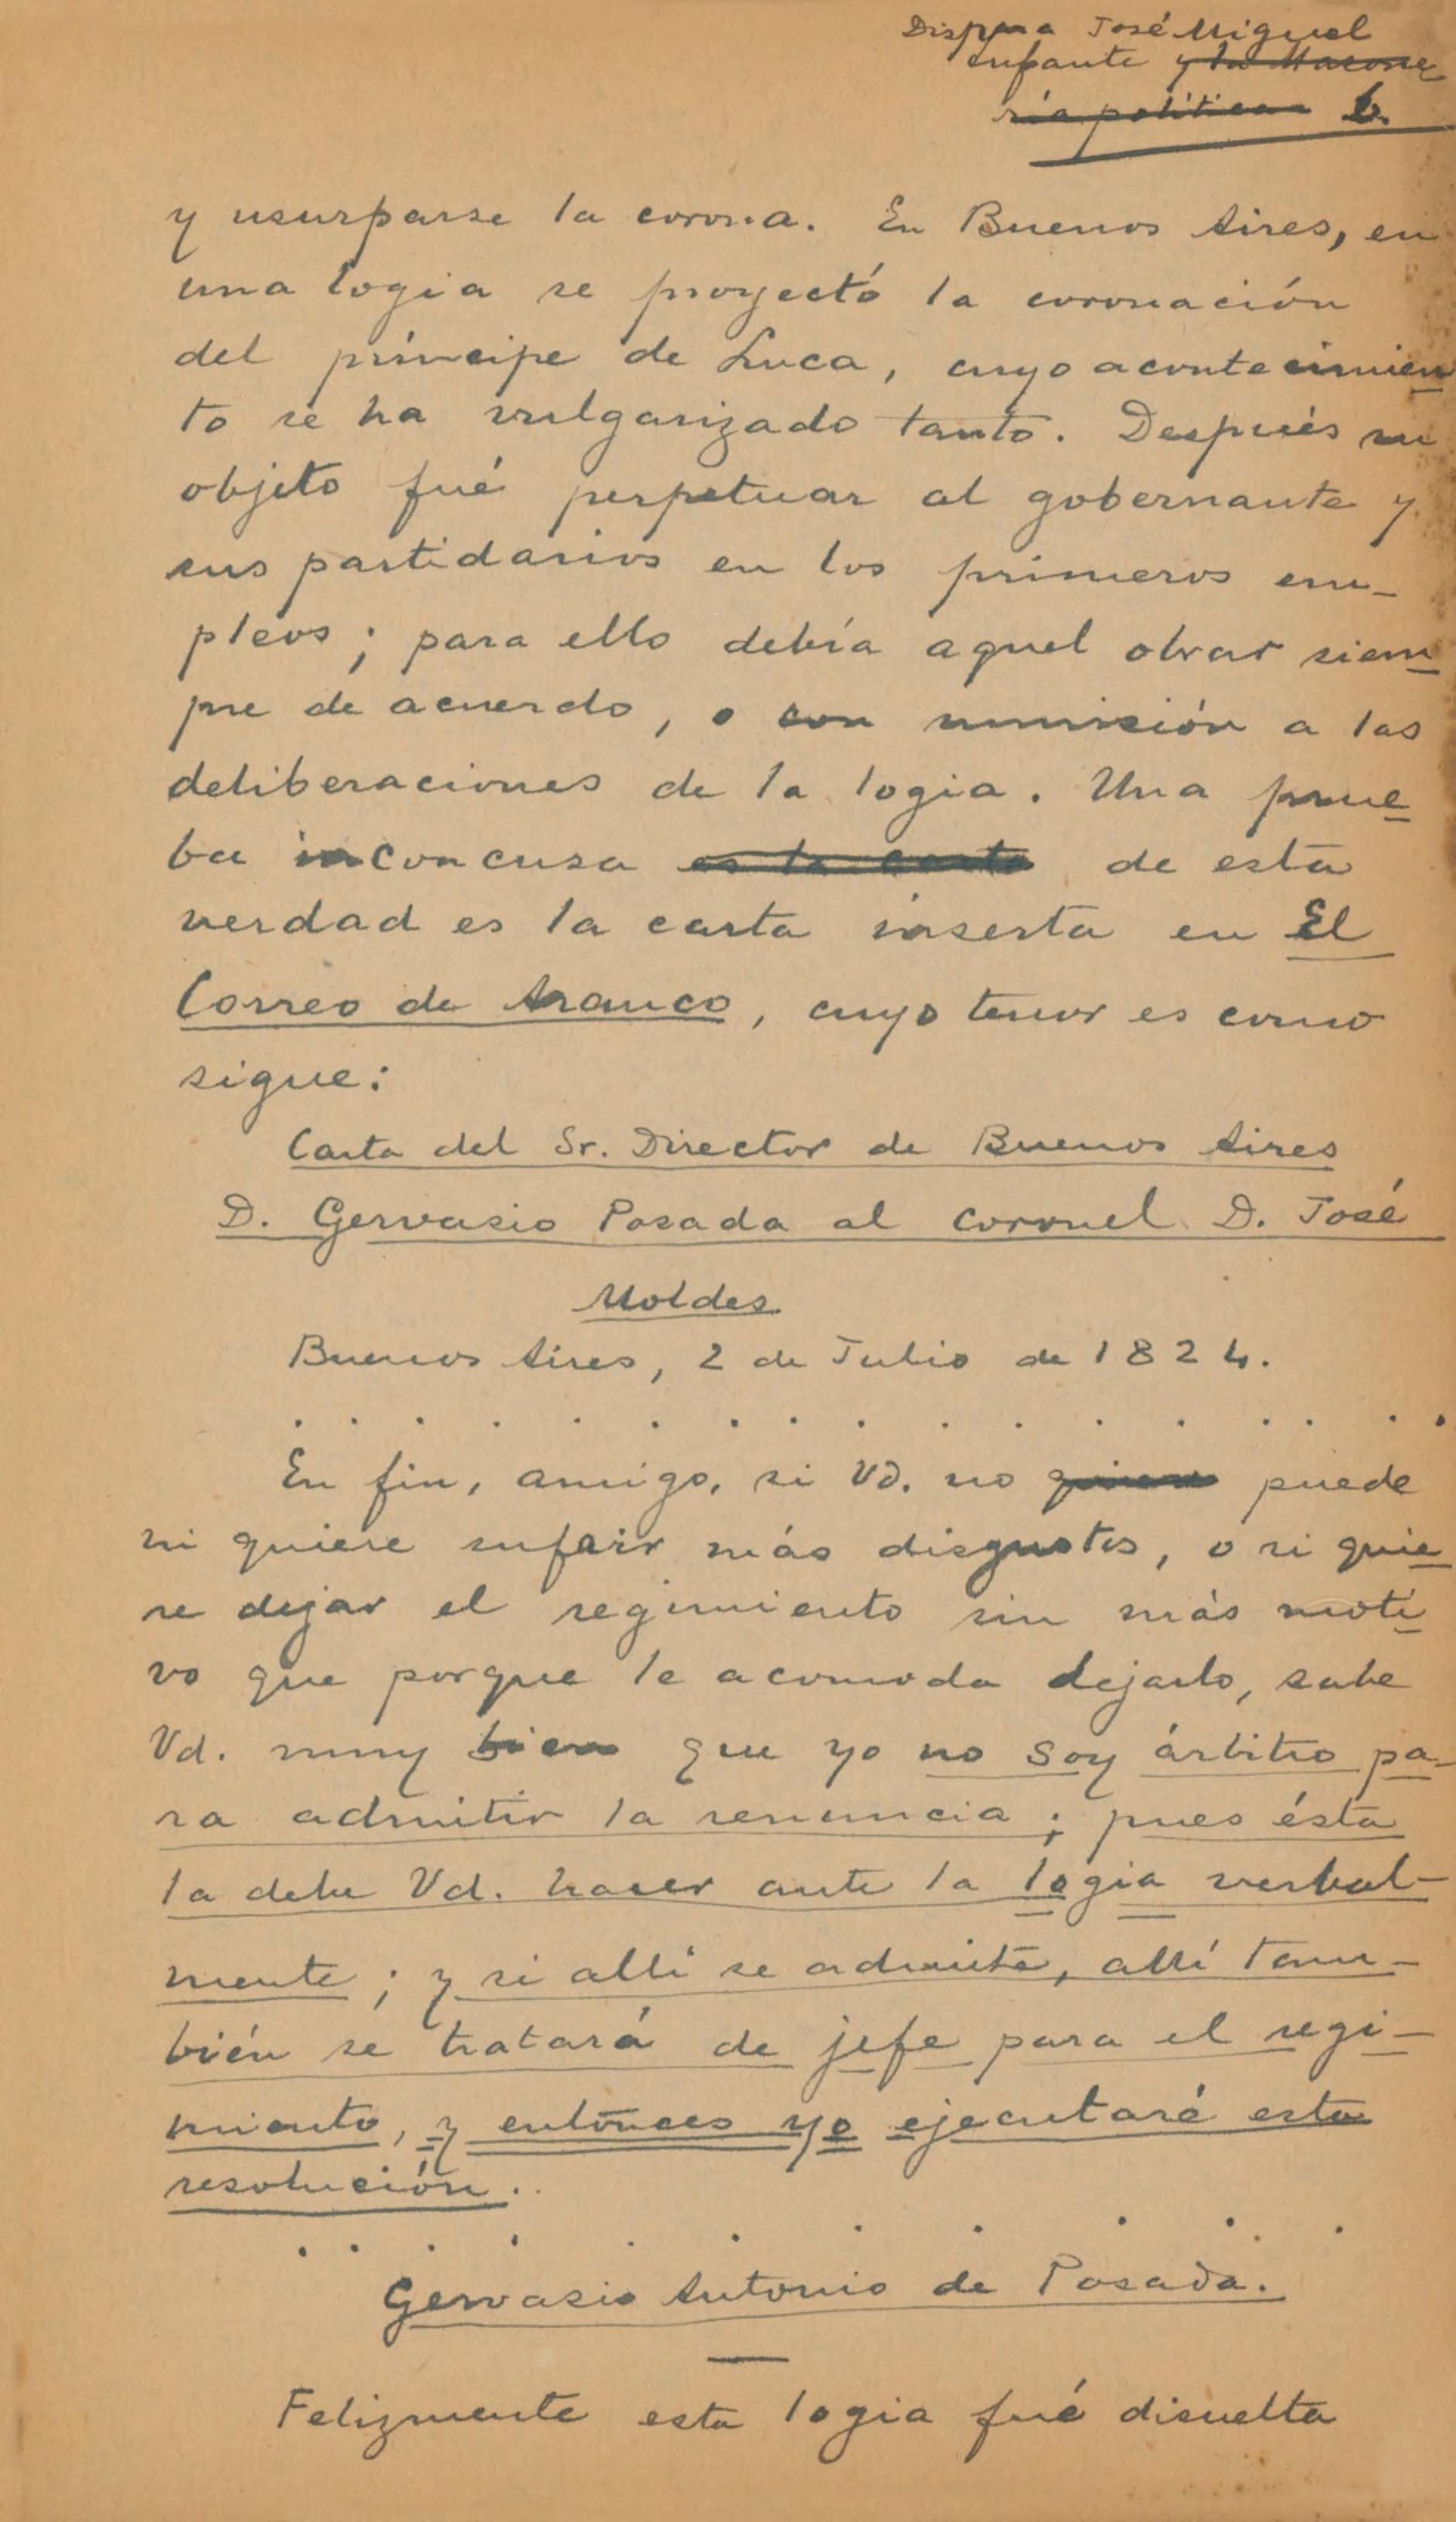 José Miguel
Infante y la Masone
ría política 6.
y usurparse la corona. En Buenos Aires, en
una logia se proyectó la coronación
del príncipe de Luca, cuyo acontecimien
to se ha vulgarizado tanto. Después su
objeto fué perpetuar al gobernante y
sus partidarios en los primeros em-
pleos; para ello debía aquel obrar siem
pre de acuerdo, o con sumisión a las
deliberaciones de la logia. Una prue
ba inconcusa es la carta de esta
verdad es la carta inserta en El
Correo de Arauco, cuyo tenor es como
sigue:
Carta del Sr. Director de Buenos Aires
D. Gervasio Posada al coronel D. José
Moldes
Buenos Aires, 2 de Julio de 1824.
. . . . . . . . . . . . . . . . . .
En fin, amigo, si Vd. no quiere puede
ni quiere sufrir más disgustos, o si quie
re dejar el regimiento sin más moti
vo que porque le acomoda dejarlo, sabe
Vd. muy bien que yo no soy árbitro pa-
ra admitir la renuncia; pues ésta
la debe Vd. hacer ante la logia verbal-
mente; y si allí se admite, allí tam-
bién se tratará de jefe para el regi-
miento, y entónces yo ejecutaré esta
resolución.
. . . . . . . . . .
Gervasio Antonio de Posada.
Felizmente esta logia fué disuelta